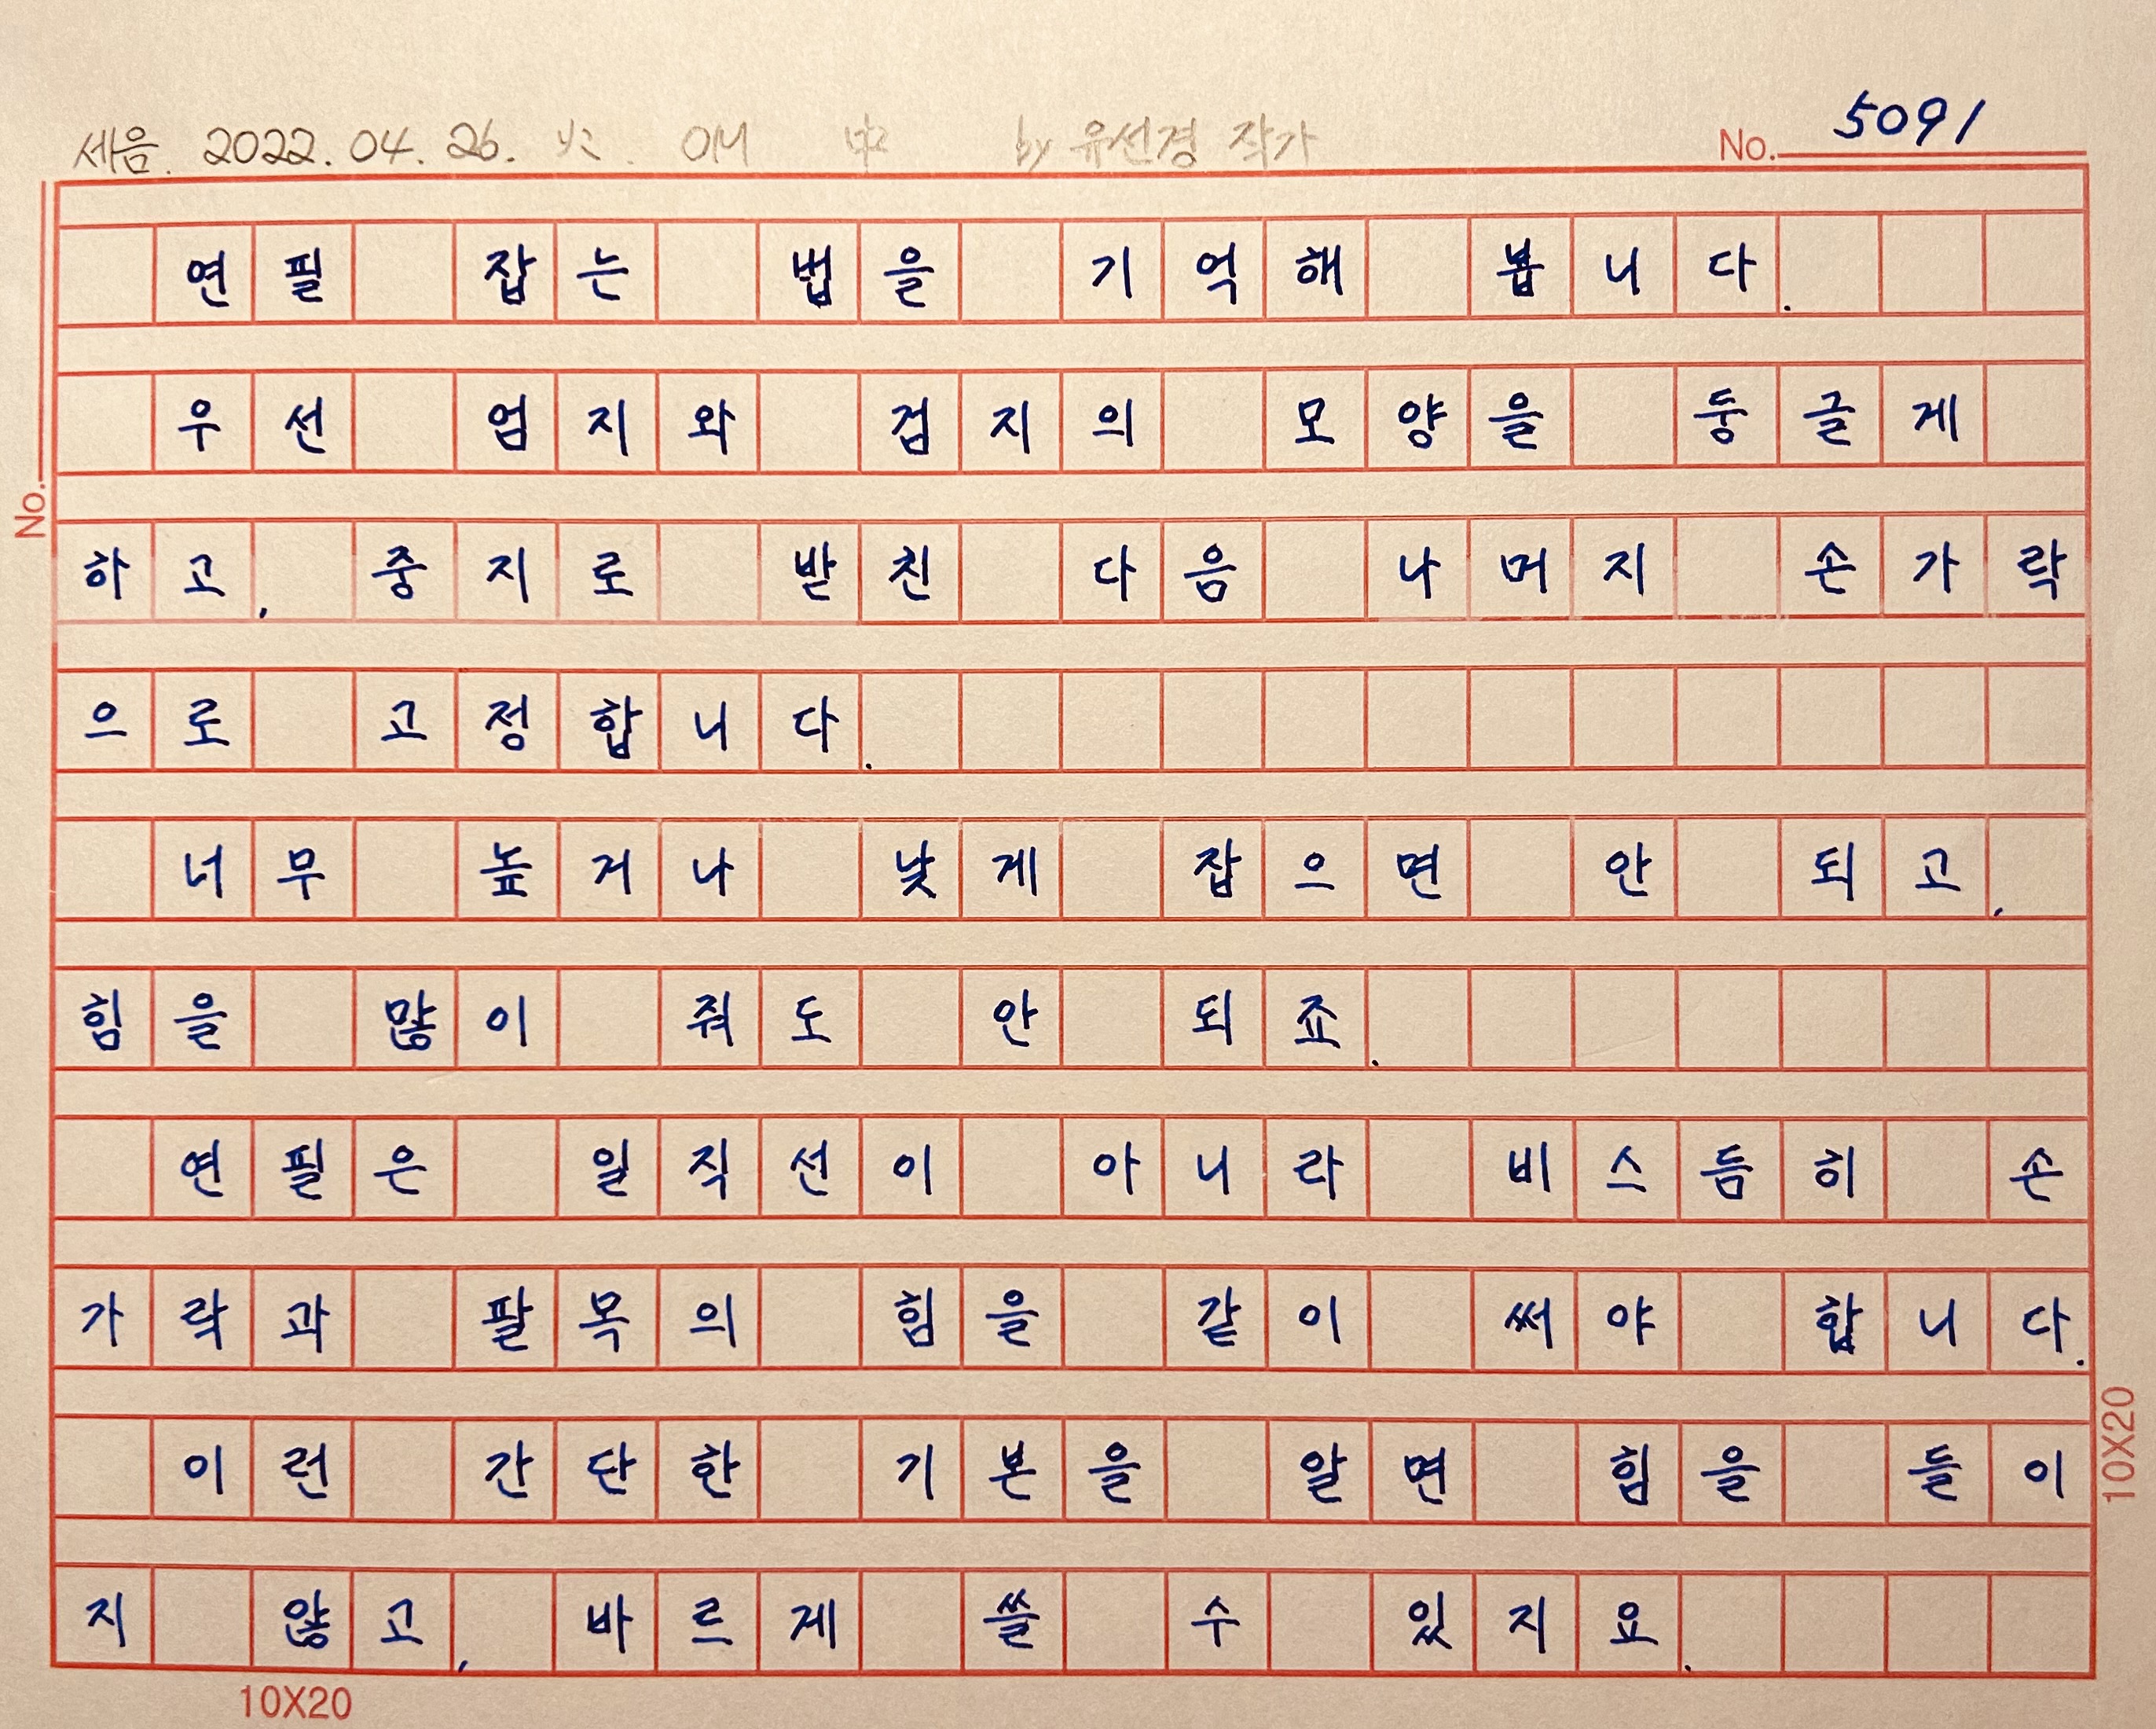 세음. 2022. 04. 26. 火. OM 中 by 유선경 작가
No. 5091
연필 잡는 법을 기억해 봅니다.
우선 엄지와 검지의 모양을 둥글게
하고, 중지로 받친 다음 나머지 손가락
으로 고정합니다.
너무 높거나 낮게 잡으면 안 되고,
힘을 많이 줘도 안 되죠.
연필은 일직선이 아니라 비스듬히 손
가락과 팔목의 힘을 같이 써야 합니다.
이런 간단한 기본을 알면 힘을 들이
지 않고, 바르게 쓸 수 있지요.
No.
10X20
10X20